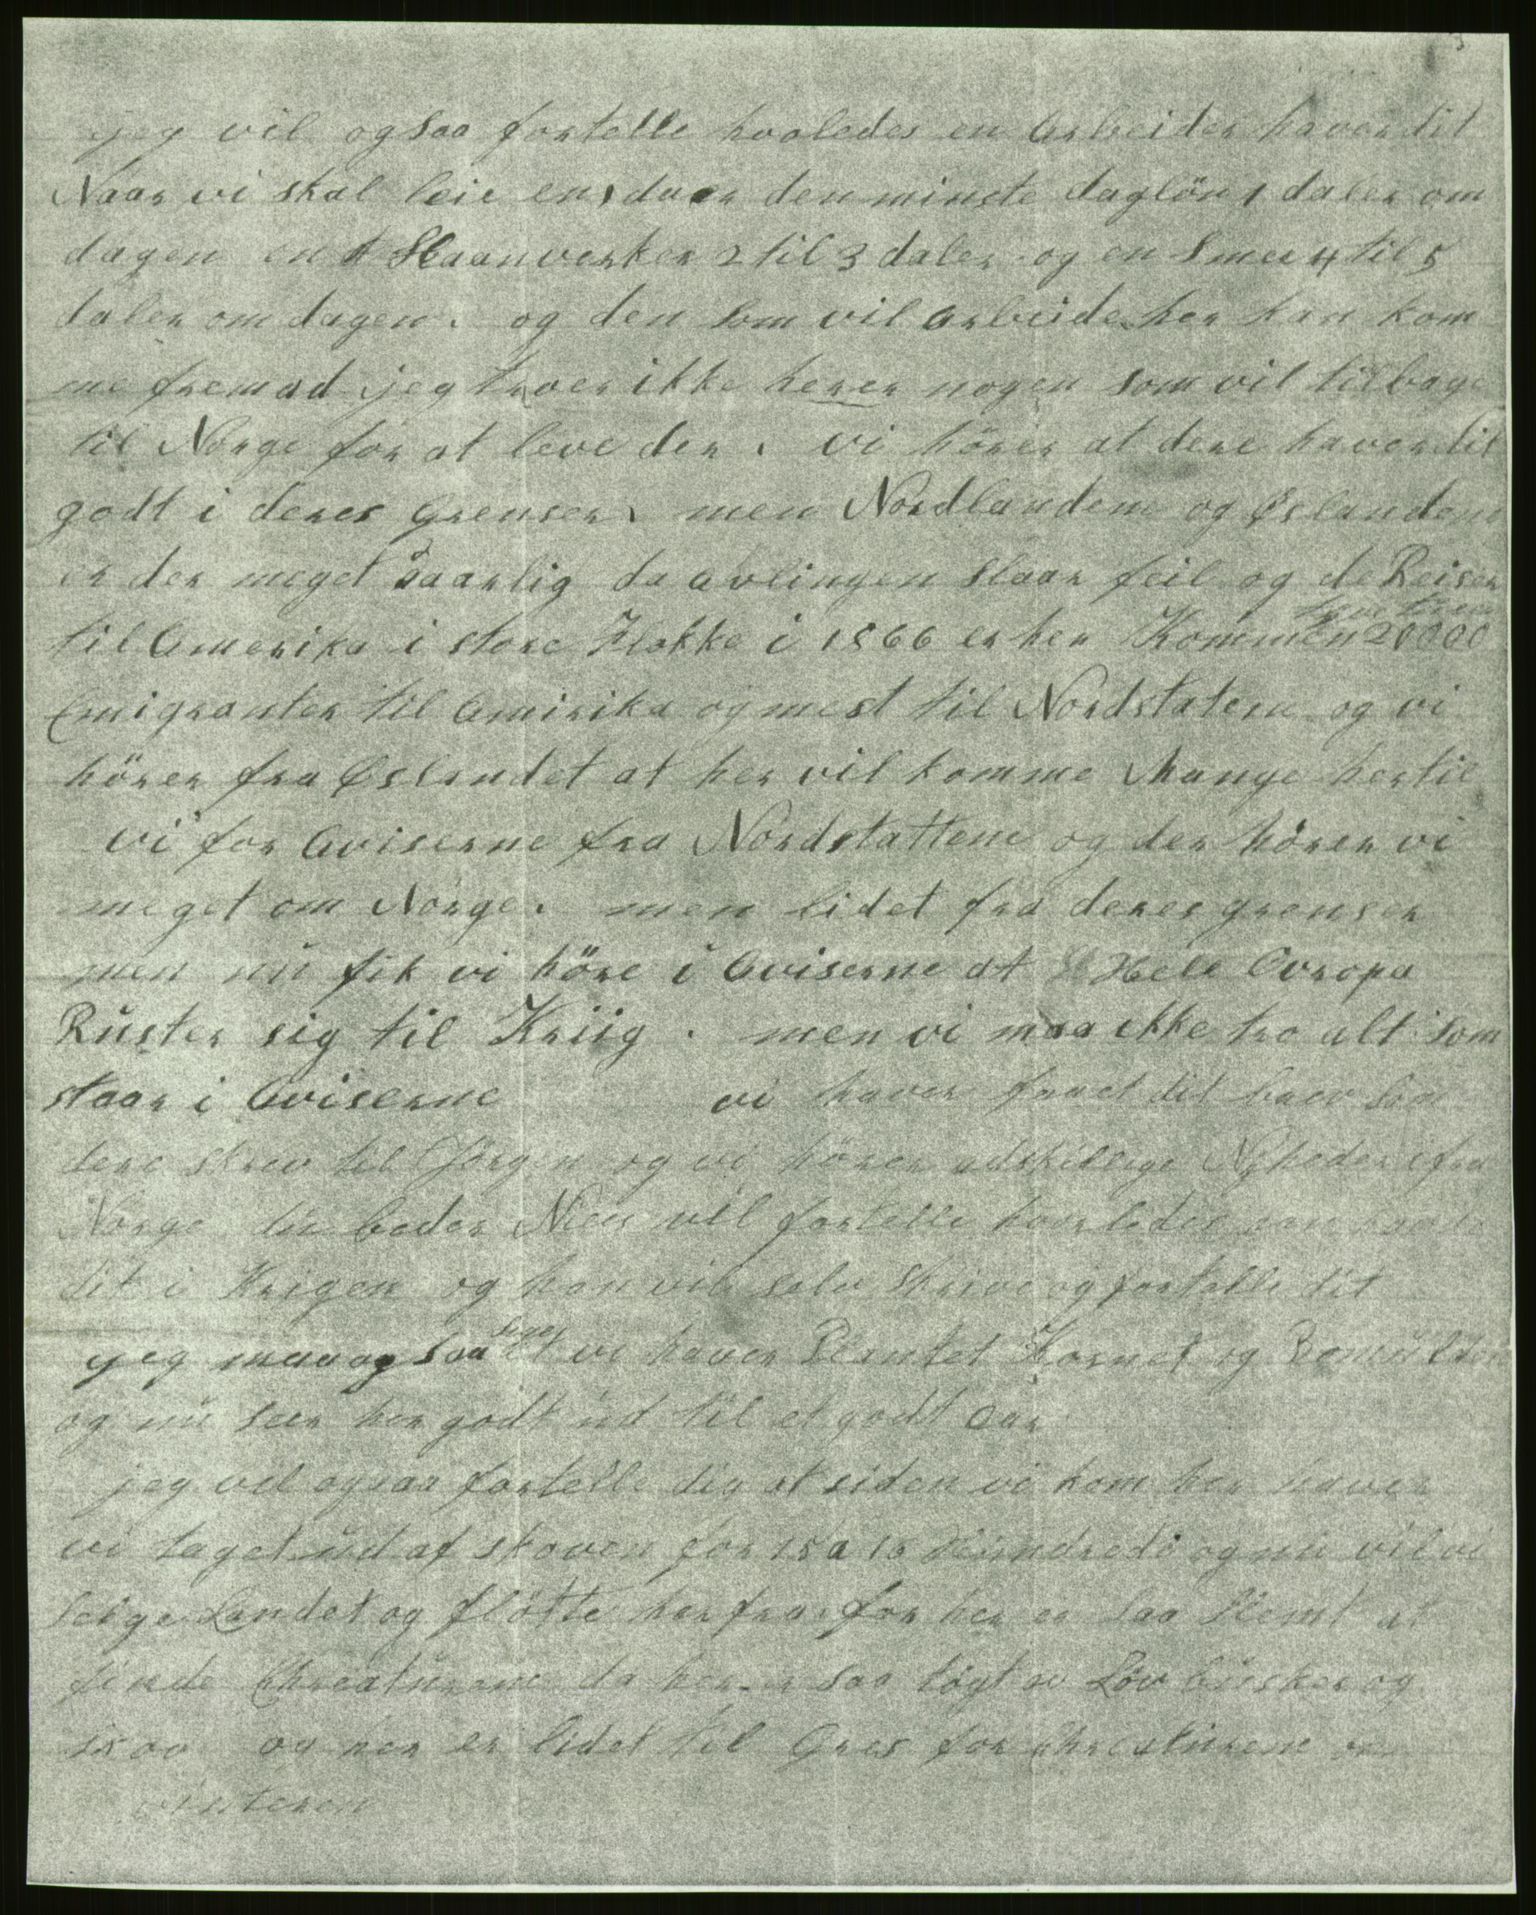 3
jeg vil ogsaa fortelle hvoledes en Arbeider haver dit
Naar vi skal leie en, du er den minste daglön 1 daler om
dagen en Haanverker 2 til 3 daler og en Smed 4 til 5
daler om dagen. og den som vil Arbeide her kan kom
me fremad jeg troer ikke her er nogen som vil tilbage
til Norge for at leve der. vi hörer at dere haver dit
godt i deres Grenser. men Nordlandene og Øslandene
er der meget Daarlig da avlingen slaar feil og de Reiser
til Amerika i store Flokke i 1866 er her Kommen 20000
Emigranter til Amirika og mest til Nordstatene og vi
hörer fra Øslandet at her vil komme Mange hertil
vi for Aviserne fra Nordstattene og der hörer vi
meget om Norge. men lidet fra deres grenser
men nü fik vi höre i Aviserne at Hele Evropa
Rüster sig til Kriig. men vi maa ikke tro alt som
staar i Aviserne vi haver faaet dit brev som
dere skrev til Jörgen og vi hörer adskillige Nyheder ifra
Norge du beder Niels vil fortelle hvorledes
dit i Krigen og han vil selv skrive og fortelle dit
jeg maa og saa sige at vi haver Plantet Kornet og Bomülden
og nü seer her godt üd til et godt Aar
jeg vil ogsaa fortelle dig at siden vi kom her haver
vi taget üd af skoven for 15 a 16 Hündrede og nü vil vi
selge Landet og flötte herfra for her er saa Slemt at
finde Chreatürene da her er saa tögt av Löv büsker og
skov og her er lidet til Gres for Chreatürene om
vinteren